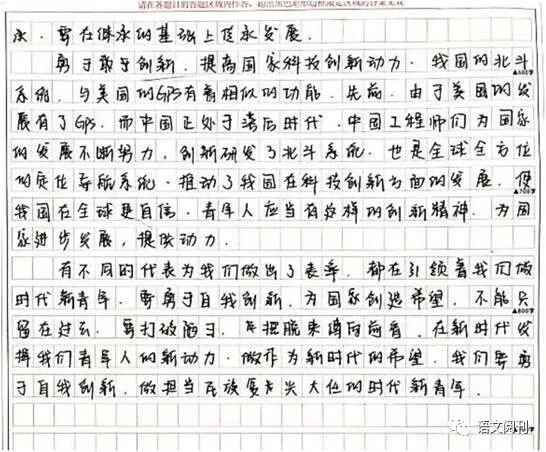 请在各题目的答题区域内作答，超出黑色矩形边框限定区域的答案无效
承，要在继承的基础上传承发展。
勇于敢于创新，提高国家科技创新动力。我国的北斗
▲600字
系统，与美国的GPS有着相似的功能。先前，由于美国的发
展有了GPS，而中国正处于落后时代，中国工程师们为国家
的发展不断努力，创新研发了北斗系统，也是全球全方位
的定位导航系统，推动了我国在科技创新方面的发展，使
▲700字
我国在全球更自信，青年人应当有这样的创新精神，为国
家进步发展，提供动力。
有不同的代表为我们做出了表率，都在引领着我们做
时代新青年，要勇于自我创新，为国家创造希望，不能只
▲800字
留在过去，要打破陋习，向前看，在新时代发
挥我们青年人的新动力，做作为新时代的希望，我们要勇
于自我创新，做担当民族复兴大位的时代新青年。
语文阅刊